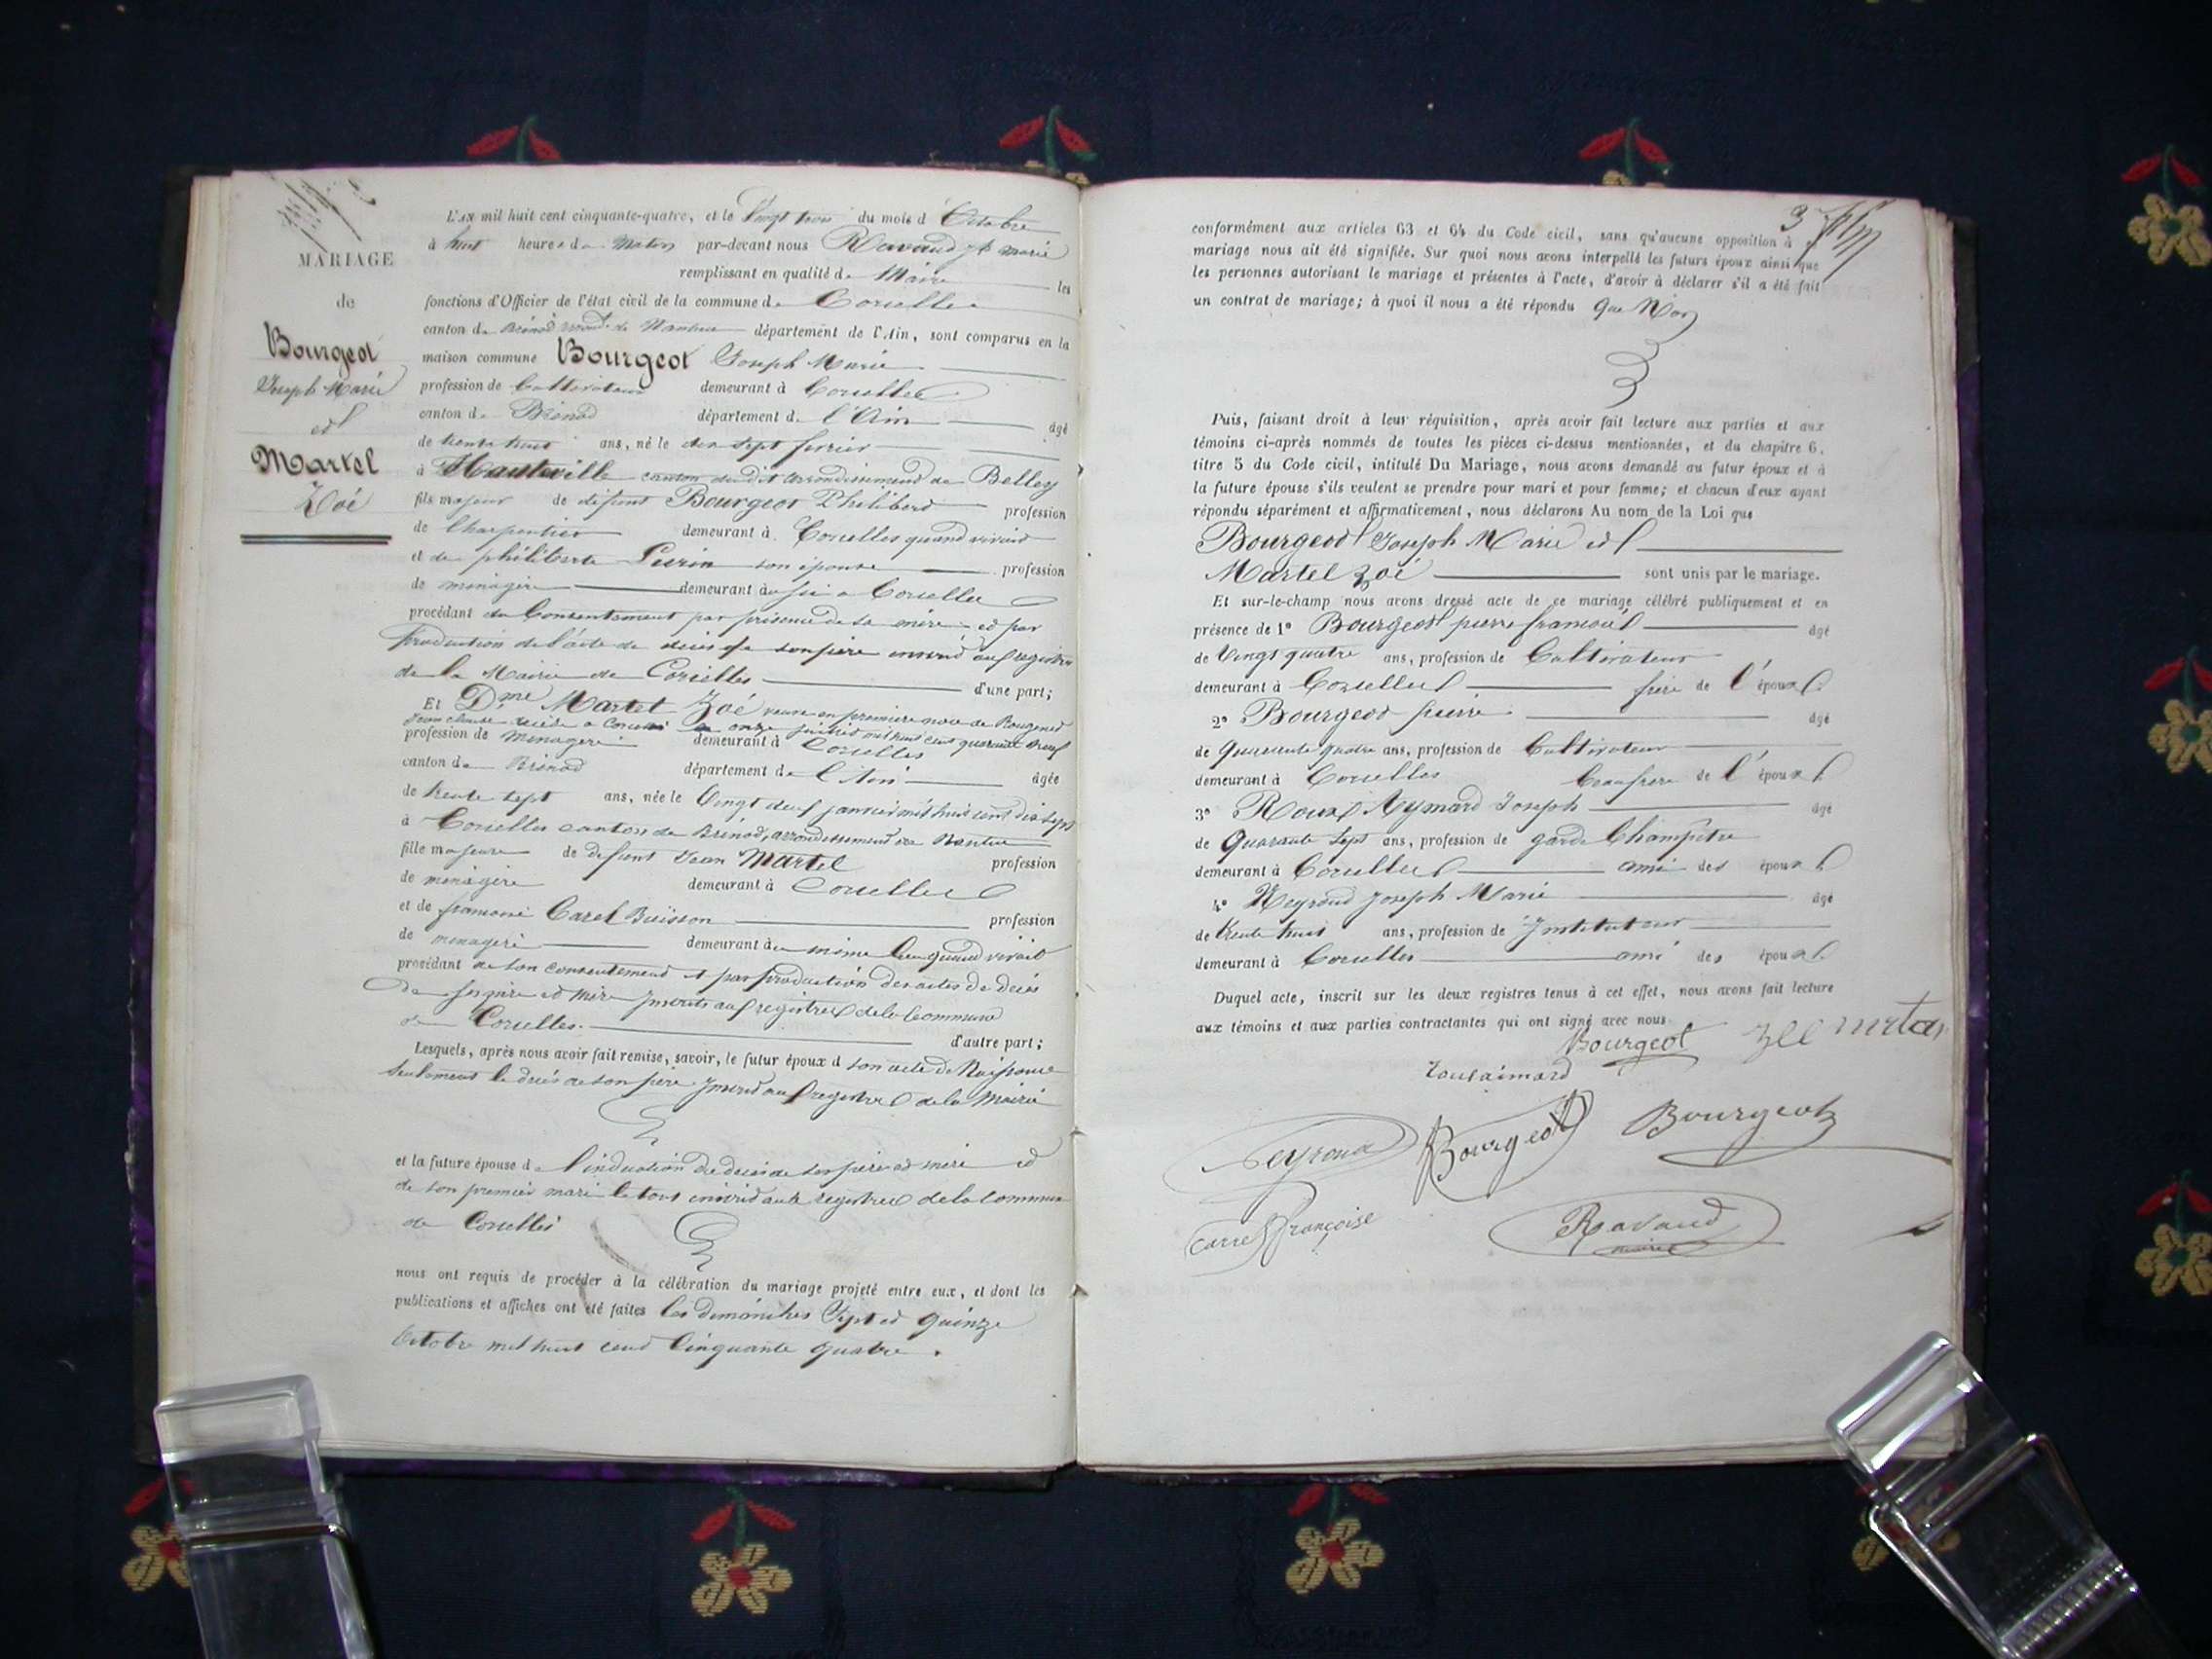 MARIAGE
de
Bourgeot
Joseph Marie
et
Martel
Zoé
L'an mil huit cent cinquante-quatre, et le Vingt trois du mois d' Octobre
à huit heures du Matin par-devant nous Ravaud jh marie
remplissant en qualité de Maire les
fonctions d'Officier de l'état civil de la commune de Corcelles
canton de Brénod arrond.t de Nantua département de l'Ain, sont comparus en la
maison commune Bourgeot Joseph Marie
profession de Cultivateur demeurant à Corcelles
canton de Brénod département de l'Ain âgé
de trente huit ans, né le dix sept fevrier
à Hauteville canton dudit arrondissement de Belley
fils majeur de défunt Bourgeot Philibert profession
de Charpentier demeurant à Corcelles quand vivait
et de philiberte son épouse profession
de ménagère demeurant aussi à Corcelles
procédant du Consentement par présence de sa mère et par
production de l'acte de décès de son père inscrit aux registres
de la Mairie de Corcelles d'une part;
Et Dme Martel Zoé veuve en première noce de
Jean claude décédé à Corcelles le onze mil huit cent quarante neuf
profession de ménagère demeurant à Corcelles
canton de Brénod département de l'Ain âgée
de trente sept ans, née le Vingt deux janvier mil huit cent dix sept
à Corcelles canton de Brénod, arrondissement de Nantua
fille majeure de défunt Jean Martel profession
de ménagère demeurant à Corcelles
et de francoise Carel Buisson profession
de ménagère demeurant au même lieu quand vivait
procédant de son consentement et par production des actes de décès
de ses père et mère inscrits aux registres de la Commune
de Corcelles. d'autre part;
Lesquels, après nous avoir fait remise, savoir, le futur époux d son acte de Naissance
seulement le décès de son père inscrit aux registres de la Mairie
et la future épouse de l'induction du décès de ses père et mère et
de son premier mari le tout inscrit aux registres de la commune
de Corcelles
nous ont requis de procéder à la célébration du mariage projeté entre eux, et dont les
publications et affiches ont été faites les dimanches Sept et quinze
Octobre mil huit cent Cinquante quatre.
3
conformément aux articles 63 et 64 du Code civil, sans qu'aucune opposition à ce
mariage nous ait été signifiée. Sur quoi nous avons interpellé les futurs époux ainsi que
les personnes autorisant le mariage et présentes à l'acte, d'avoir à déclarer s'il a été fait
un contrat de mariage; à quoi il nous a été répondu que Non
Puis, faisant droit à leur réquisition, après avoir fait lecture aux parties et aux
témoins ci-après nommés de toutes les pièces ci-dessus mentionnées, et du chapitre 6,
titre 5 du Code civil, intitulé Du Mariage, nous avons demandé au futur époux et à
la future épouse s'ils veulent se prendre pour mari et pour femme; et chacun d'eux ayant
répondu séparément et affirmativement, nous déclarons Au nom de la Loi que
Bourgeot Joseph Marie et
Martel Zoé sont unis par le mariage.
Et sur-le-champ nous avons dressé acte de ce mariage célébré publiquement et en
présence de 1° Bourgeot pierre françois âgé
de Vingt quatre ans, profession de Cultivateur
demeurant à Corcelles frère de l'époux
2° Bourgeot pierre âgé
de quarante quatre ans, profession de Cultivateur
demeurant à Corcelles beau frère de l'époux
3° Roux Aymard Joseph âgé
de quarante sept ans, profession de garde Champêtre
demeurant à Corcelles ami des époux
4° Reyroud Joseph Marie âgé
de trente huit ans, profession de Instituteur
demeurant à Corcelles ami des époux
Duquel acte, inscrit sur les deux registres tenus à cet effet, nous avons fait lecture
aux témoins et aux parties contractantes qui ont signé avec nous.
Bourgeot
Reyroud Bourgeot Bourgeot
Carrel françoise Ravaud
maire